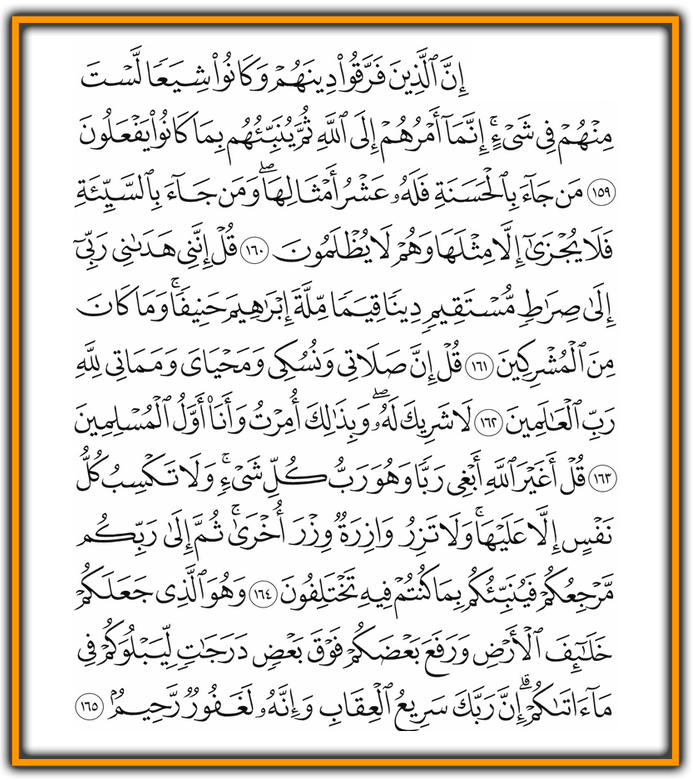 إِنَّ ٱلَّذِينَ فَرَّقُوا۟ دِينَهُمْ وَكَانُوا۟ شِيَعًا لَّسْتَ
مِنْهُمْ فِى شَىْءٍ ۚ إِنَّمَآ أَمْرُهُمْ إِلَى ٱللَّهِ ثُمَّ يُنَبِّئُهُم بِمَا كَانُوا۟ يَفْعَلُونَ
١٥٩ مَن جَآءَ بِٱلْحَسَنَةِ فَلَهُۥ عَشْرُ أَمْثَالِهَا ۖ وَمَن جَآءَ بِٱلسَّيِّئَةِ
فَلَا يُجْزَىٰٓ إِلَّا مِثْلَهَا وَهُمْ لَا يُظْلَمُونَ ١٦٠ قُلْ إِنَّنِى هَدَىٰنِى رَبِّىٓ
إِلَىٰ صِرَٰطٍ مُّسْتَقِيمٍ دِينًا قِيَمًا مِّلَّةَ إِبْرَٰهِيمَ حَنِيفًا ۚ وَمَا كَانَ
مِنَ ٱلْمُشْرِكِينَ ١٦١ قُلْ إِنَّ صَلَاتِى وَنُسُكِى وَمَحْيَاىَ وَمَمَاتِى لِلَّهِ
رَبِّ ٱلْعَٰلَمِينَ ١٦٢ لَا شَرِيكَ لَهُۥ ۖ وَبِذَٰلِكَ أُمِرْتُ وَأَنَا۠ أَوَّلُ ٱلْمُسْلِمِينَ
١٦٣ قُلْ أَغَيْرَ ٱللَّهِ أَبْغِى رَبًّا وَهُوَ رَبُّ كُلِّ شَىْءٍ ۚ وَلَا تَكْسِبُ كُلُّ
نَفْسٍ إِلَّا عَلَيْهَا ۚ وَلَا تَزِرُ وَازِرَةٌ وِزْرَ أُخْرَىٰ ۚ ثُمَّ إِلَىٰ رَبِّكُم
مَّرْجِعُكُمْ فَيُنَبِّئُكُم بِمَا كُنتُمْ فِيهِ تَخْتَلِفُونَ ١٦٤ وَهُوَ ٱلَّذِى جَعَلَكُمْ
خَلَٰٓئِفَ ٱلْأَرْضِ وَرَفَعَ بَعْضَكُمْ فَوْقَ بَعْضٍ دَرَجَٰتٍ لِّيَبْلُوَكُمْ فِى
مَآ ءَاتَىٰكُمْ ۗ إِنَّ رَبَّكَ سَرِيعُ ٱلْعِقَابِ وَإِنَّهُۥ لَغَفُورٌ رَّحِيمٌۢ ١٦٥